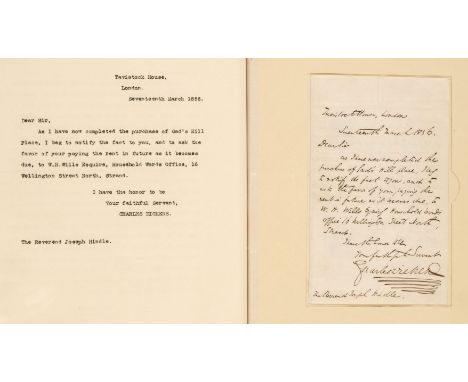 Tavistock House.
London.
Seventeenth March 1856.
Dear Sir,
As I have now completed the purchase of Gad's Hill
Place, I beg to notify the fact to you, and to ask the
favor of your paying the rent in future as it becomes
due, to W.H.Wills Esquire, Household Words Office, 16
Wellington Street North, Strand.
I have the honor to be
Your faithful Servant,
CHARLES DICKENS.
The Reverend Joseph Hindle.
Tavistock House, London
Seventeenth March 1856.
Dear Sir
As I have now completed the
purchase of Gad's Hill Place, I beg
to notify the fact to you, and to
ask the favor of your paying the
rent in future as it becomes due, to
W. H. Wills Esquire Household Words
Office 16 Wellington Street North,
Strand.
I have the honor to be
Your faithful Servant
Charles Dickens
The Reverend Joseph Hindle.